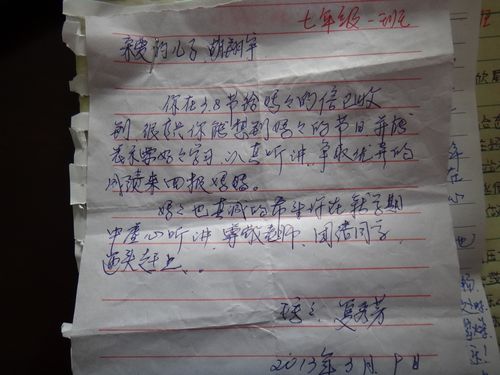 七年级一班
亲爱的儿子,胡翔宇
你在3.8节给妈々的信已收
到,很高兴你能想到妈々的节日并能
表示要好々学习,认真听讲,争取优异的
成绩来回报妈妈。
妈々也真诚的希望你在新学期
中虚心听讲,尊敬老师,团结同学
迎头赶上、
妈々:夏芳
2013年3月9日